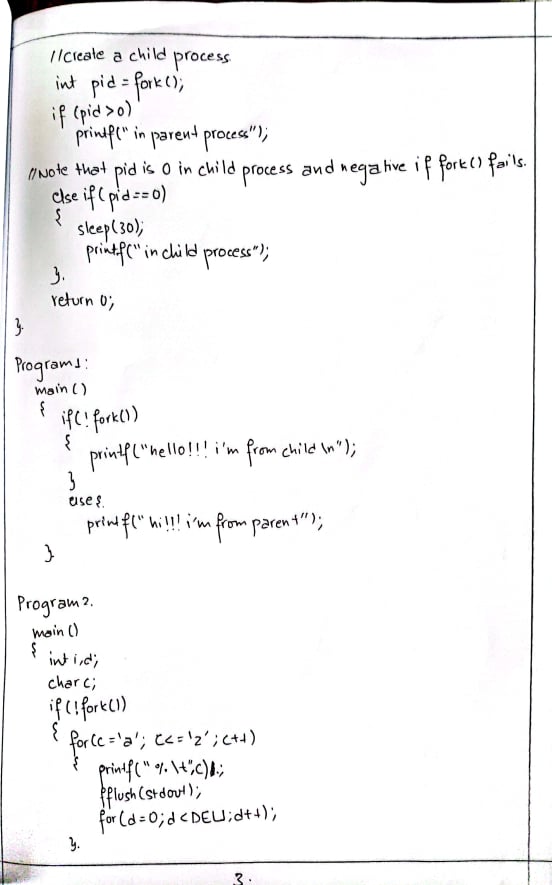 //Create a child process
int pid = fork();
if (pid>0)
printf(" in parent process");
//Note that pid is 0 in child process and negative if fork() fails.
else if(pid==0)
{
sleep(30);
printf("in child process");
}.
return 0;
}.
Program1:
main()
{ if(!fork())
{
printf("hello!!! i'm from child \n");
}
else{
printf(" hi!!! i'm from parent");
}
Program2.
main()
{ int i,d;
char c;
if(!fork())
{ for(c='a'; c<='z'; c++)
{ printf(" %.\t",c);
fflush(stdout);
for(d=0;d<DELJ;d++);
}.
3.